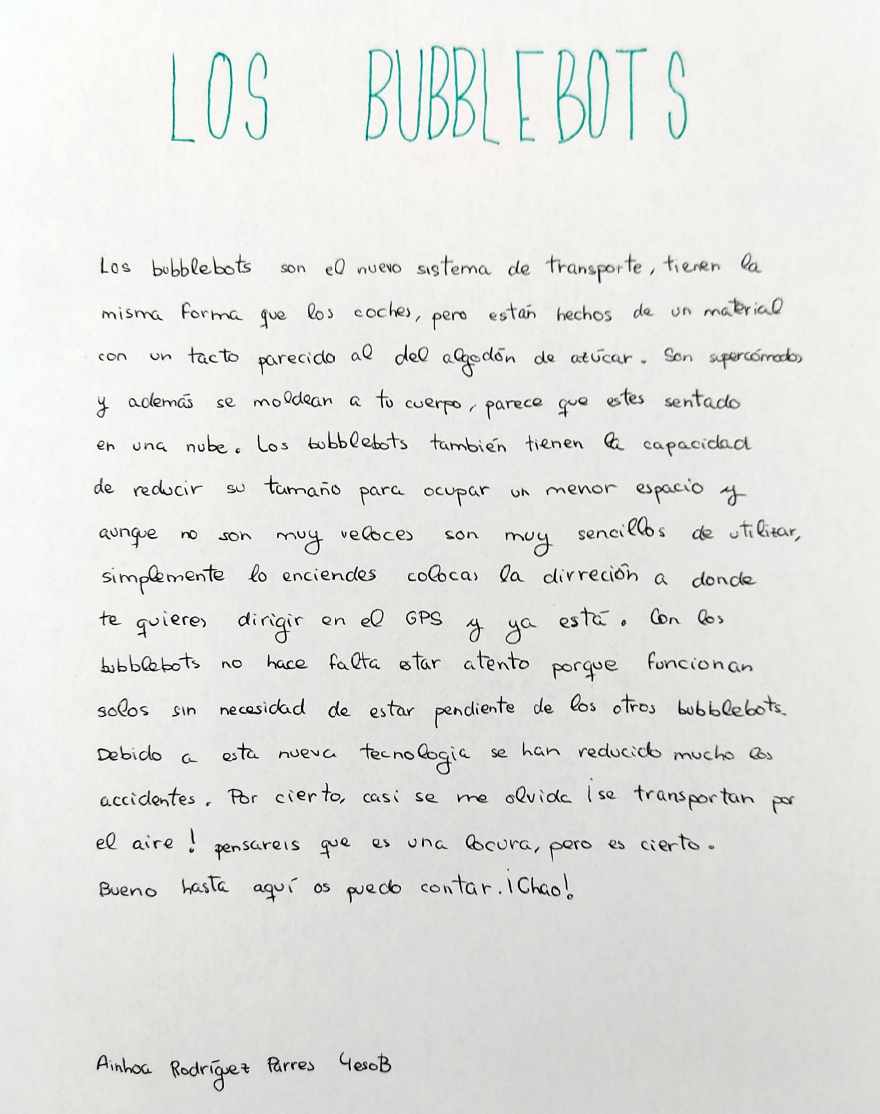 LOS BUBBLEBOTS
Los bubblebots son el nuevo sistema de transporte, tienen la
misma forma que los coches, pero están hechos de un material
con un tacto parecido al del algodón de azúcar. Son supercómodos
y además se moldean a tu cuerpo, parece que estes sentado
en una nube. Los bubblebots también tienen la capacidad
de reducir su tamaño para ocupar un menor espacio y
aunque no son muy veloces son muy sencillos de utilizar,
simplemente lo enciendes colocas la dirreción a donde
te quieres dirigir en el GPS y ya está. Con los
bubblebots no hace falta estar atento porque funcionan
solos sin necesidad de estar pendiente de los otros bubblebots.
Debido a esta nueva tecnologia se han reducido mucho los
accidentes. Por cierto, casi se me olvida ¡se transportan por
el aire! pensareis que es una locura, pero es cierto.
Bueno hasta aquí os puedo contar. ¡Chao!
Ainhoa Rodríguez Parres 4esoB